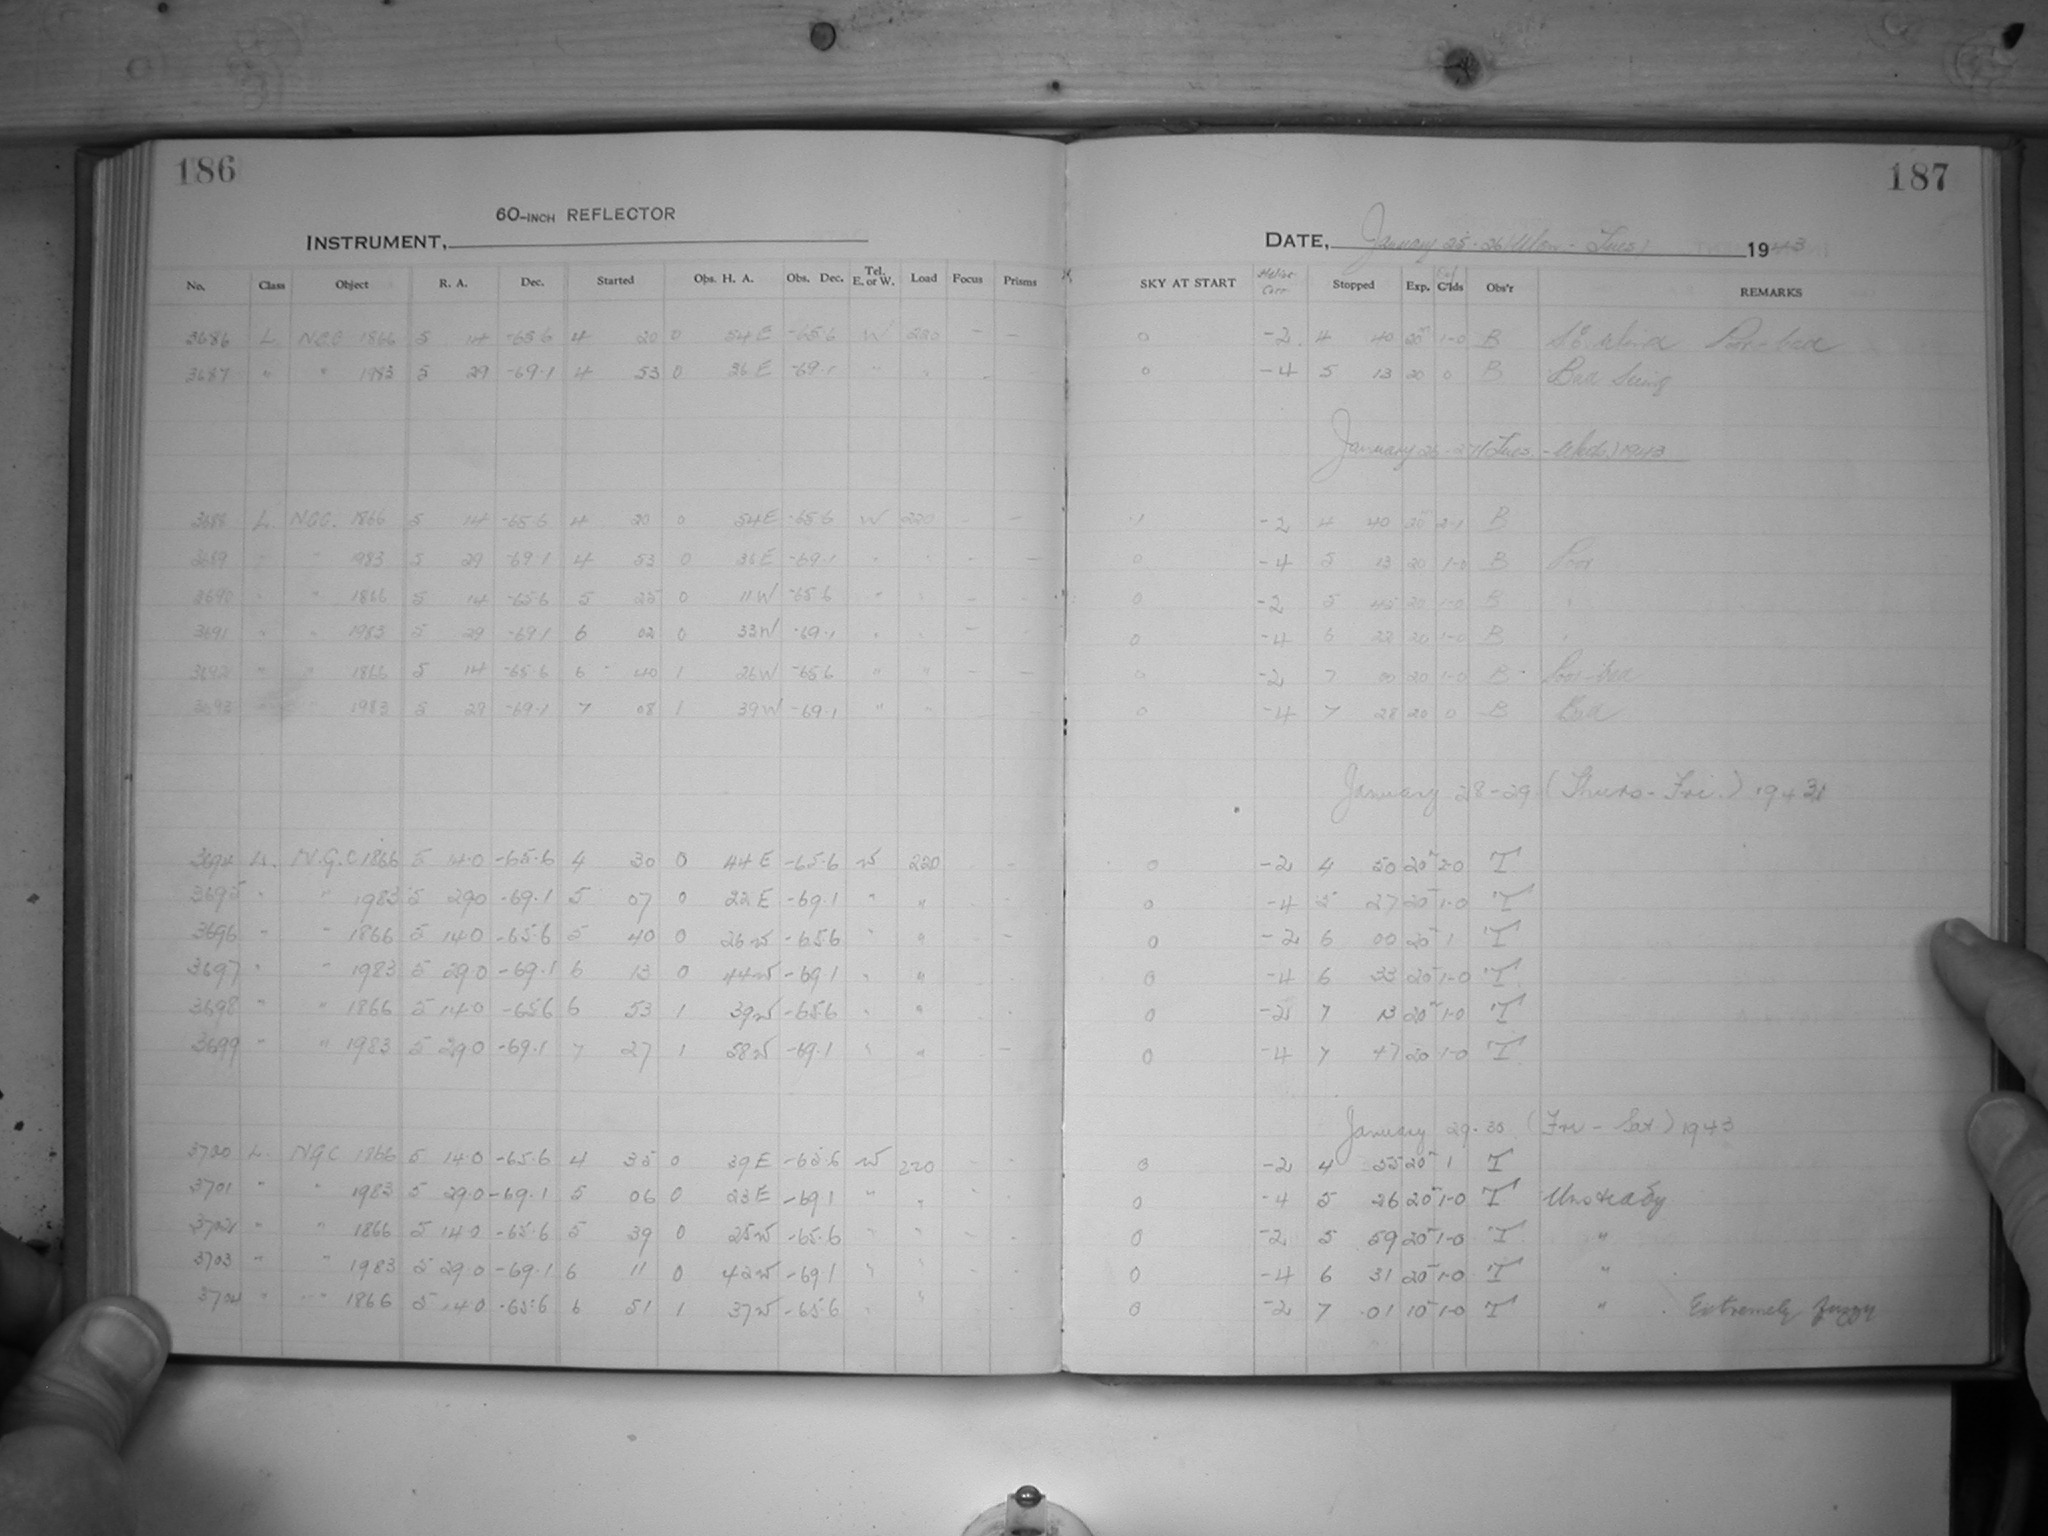 186
60-INCH REFLECTOR
INSTRUMENT,
No. Class Object R. A. Dec. Started Obs. H. A. Obs. Dec. Tel. E. or W. Load Focus Prisms
3686 L NGC 1866 5 14 -65.6 4 20 0 54 E -65.6 W 220 - -
3687 " " 1983 5 29 -69.1 4 53 0 36 E -69.1 " "
3688 L NGC. 1866 5 14 -65.6 4 20 0 54 E -65.6 W 220 - -
3689 " " 1983 5 29 -69.1 4 53 0 36 E -69.1 " " - -
3690 " " 1866 5 14 -65.6 5 25 0 11 W -65.6 " " - -
3691 " " 1983 5 29 -69.1 6 02 0 33 W -69.1 " " - -
3692 " " 1866 5 14 -65.6 6 40 1 26 W -65.6 " " - -
3693 " " 1983 5 29 -69.1 7 08 1 39 W -69.1 " " - -
3694 L. N.G.C 1866 5 14.0 -65.6 4 30 0 44 E -65.6 W 220 - -
3695 " " 1983 5 29.0 -69.1 5 07 0 22 E -69.1 " " - -
3696 " " 1866 5 14.0 -65.6 5 40 0 26 W -65.6 " " - -
3697 " " 1983 5 29.0 -69.1 6 13 0 44 W -69.1 " " - -
3698 " " 1866 5 14.0 -65.6 6 53 1 39 W -65.6 " " - -
3699 " " 1983 5 29.0 -69.1 7 27 1 58 W -69.1 " " - -
3700 L. NGC 1866 5 14.0 -65.6 4 35 0 39 E -65.6 W 220 - -
3701 " " 1983 5 29.0 -69.1 5 06 0 23 E -69.1 " " - -
3702 " " 1866 5 14.0 -65.6 5 39 0 25 W -65.6 " " - -
3703 " " 1983 5 29.0 -69.1 6 11 0 42 W -69.1 " " - -
3704 " " 1866 5 14.0 -65.6 6 51 1 37 W -65.6 " "
187
DATE, January 25-26 (Mon - Tues) 1943
SKY AT START Helio Corr Stopped Exp. C'lds Obs'r REMARKS
0 -2 4 40 20 1-0 B Poor - bad
0 -4 5 13 20 0 B Bad Seeing
January 26-27 (Tues. - Weds.) 1943
-2 4 40 20 2-1 B
0 -4 5 13 20 1-0 B Poor
0 -2 5 45 20 1-0 B "
0 -4 6 22 20 1-0 B "
0 -2 7 00 20 1-0 B Poor-bad
0 -4 7 28 20 0 B Bad
January 28-29 (Thurs - Fri.) 1943
0 -2 4 50 20 2-0 T
0 -4 5 27 20 1-0 T
0 -2 6 00 20 1 T
0 -4 6 33 20 1-0 T
0 -2 7 13 20 1-0 T
0 -4 7 47 20 1-0 T
January 29-30 (Fri - Sat) 1943
0 -2 4 55 20 1 T
0 -4 5 26 20 1-0 T Unsteady
0 -2 5 59 20 1-0 T "
0 -4 6 31 20 1-0 T "
0 -2 7 01 10 1-0 T " Extremely fuzzy